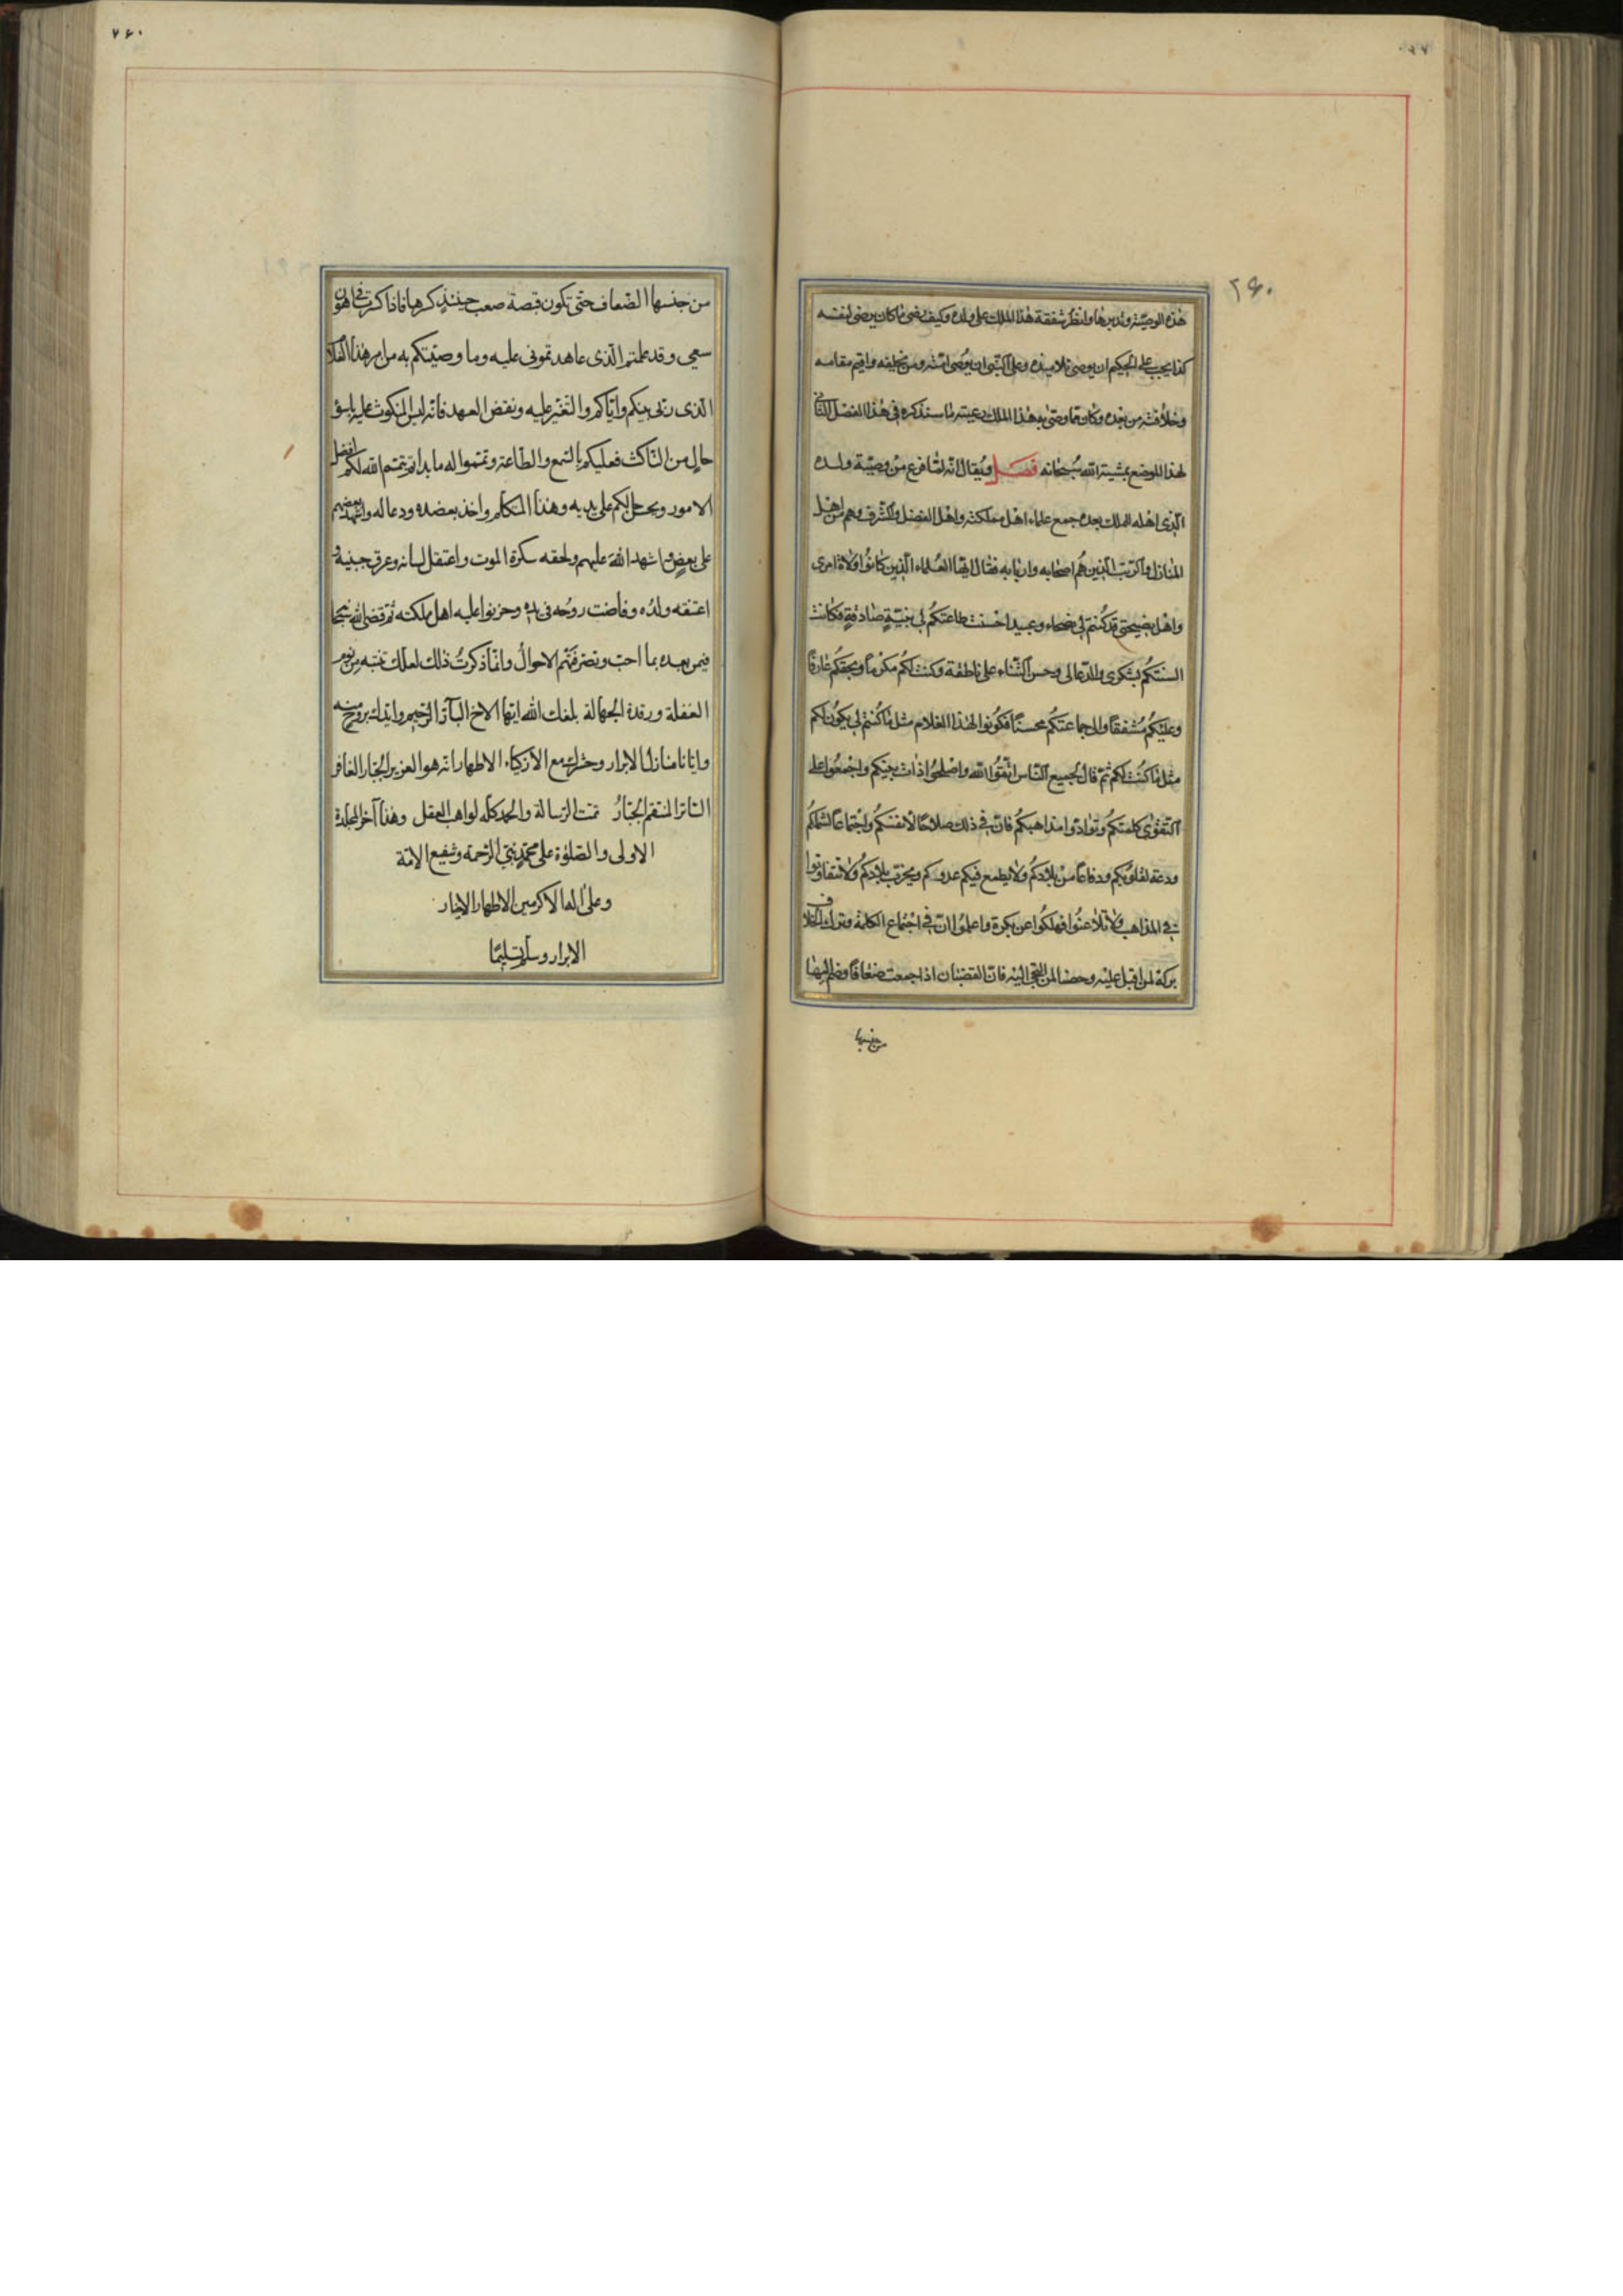 ٢٦٠
هذه الوصية وتدبرها وانظر شفقة هذا الملك على ولده وكيف رضى ما كان يرضى لنفسه
كذا يجب على الحكيم ان يوصى تلاميذه وعلى النبى ان يوصى امته ومن يخلفه واقيم مقامه
وخلافته من بعده وكان مما وصى به هذا الملك رعيته ما سنذكره فى هذا الفصل الثانى
لهذا الموضع بمشية الله سبحانه فصل ويقال انه لما فرغ من وصية ولده
الذى اهله للملك بعده جمع علماء اهل مملكته واهل الفضل والشرف وهم من اهل
المنازل والرتب الذين هم اصحابه واربابه فقال ايها العلماء الذين كانوا ولاة امرى
واهل نصيحتى قد كنتم لى نصحاء وعبيدا حسنت طاعتكم لى بنية صادقة وكانت
السنتكم بشكرى والدعا لى وحسن الثناء على ناطقة وكنت لكم مكرما وبحقكم عارفا
وعليكم مشفقا والى جماعتكم محسنا فكونوا لهذا الغلام مثل ما كنتم لى يكون لكم
مثل ما كنت لكم ثم قال لجميع الناس اتقوا الله واصلحوا ذات بينكم واجمعوا على
التقوى كلمتكم وتوادوا مذاهبكم فان فى ذلك صلاحا لانفسكم واجتماعا لشملكم
ودعة لقلوبكم ودفاعا من بلادكم ولا يطمع فيكم عدوكم ويخرب بلادكم ولا تتفاوتوا
فى المذاهب ولا تلاعنوا فهلكوا عن بكرة واعلموا ان فى اجتماع الكلمة وترك الخلاف
بركة لمن اقبل عليه وحصنا لمن التجى اليه فان القضبان اذا جمعت ضعافا وضم اليها
من جنسها
٧٦٠
من جنسها الضعاف حتى تكون قبصة صعب حينئذ كرها فاذا كرت فى اهون
سعى وقد علمتم الذى عاهدتمونى عليه وما وصيتكم به من امر هذا الغلام
الذى ربى بينكم واياكم والتغير عليه ونقض العهد فانه ليس المنكوث عليه باسؤ
حال من الناكث فعليكم بالسمع والطاعة وتمموا له ما بدأتم يتمم الله لكم افضل
الامور ويحل لكم على يديه وهذا المتكلم واخذ بعضده ودعا له واشهد بعضهم
على بعض واشهد الله عليهم ولحقه سكرة الموت واعتقل لسانه وعرق جبينه و
اعتنقه ولده وفاضت روحه فى يده وحزنوا عليه اهل مملكته ثم قضى الله سبحا
فيمن بعده بما احب وتصرفت بهم الاحوال وانما ذكرت ذلك لعلك تنتبه من نوم
الغفلة ورقدة الجهالة بلغك الله ايها الاخ البار الرحيم وايدك بروح منه
وايانا منازل الابرار وحشرك مع الازكياء الاطهار انه هو العزيز الجبار الغافر
الساتر المنتقم الجبار تمت الرسالة والحمد كله لواهب العقل وهذا آخر المجلدة
الاولى والصلوة على محمد نبى الرحمة وشفيع الامة
وعلى آله الاكرمين الاطهار الاخيار
الابرار وسلم تسليما